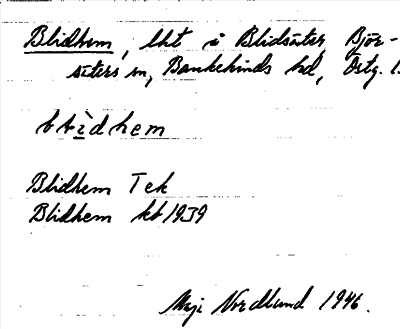 Blidhem, lht i Blidsäter, Björ-
säters sn, Bankekinds hd, Östg. l.
blìdhem
Blidhem Tek
Blidhem kb 1939
Maj Nordlund 1946.